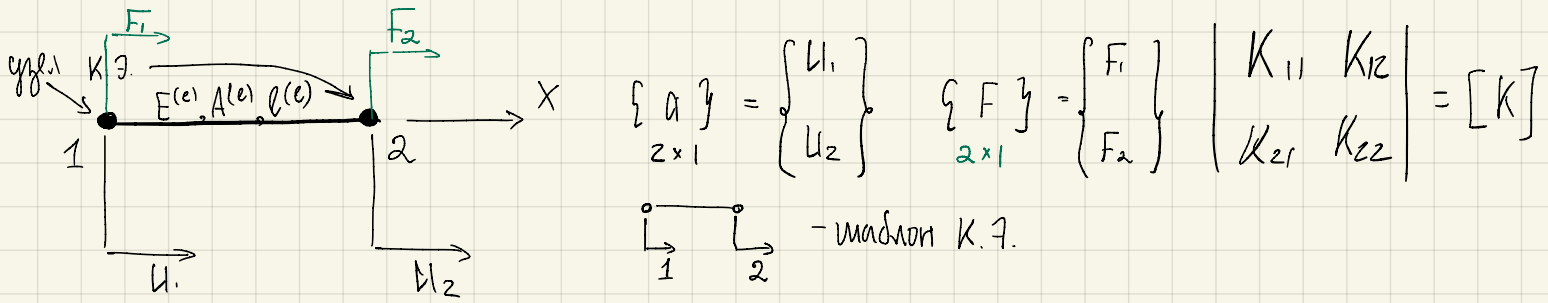 F₁
F₂
узел К.Э.
E⁽ᵉ⁾, A⁽ᵉ⁾, l⁽ᵉ⁾
X
1
2
U₁
U₂
{ a } = { U₁ U₂ }
2×1
{ F } = { F₁ F₂ }
2×1
| K₁₁ K₁₂ |
| K₂₁ K₂₂ | = [K]
1 2
- шаблон К.Э.